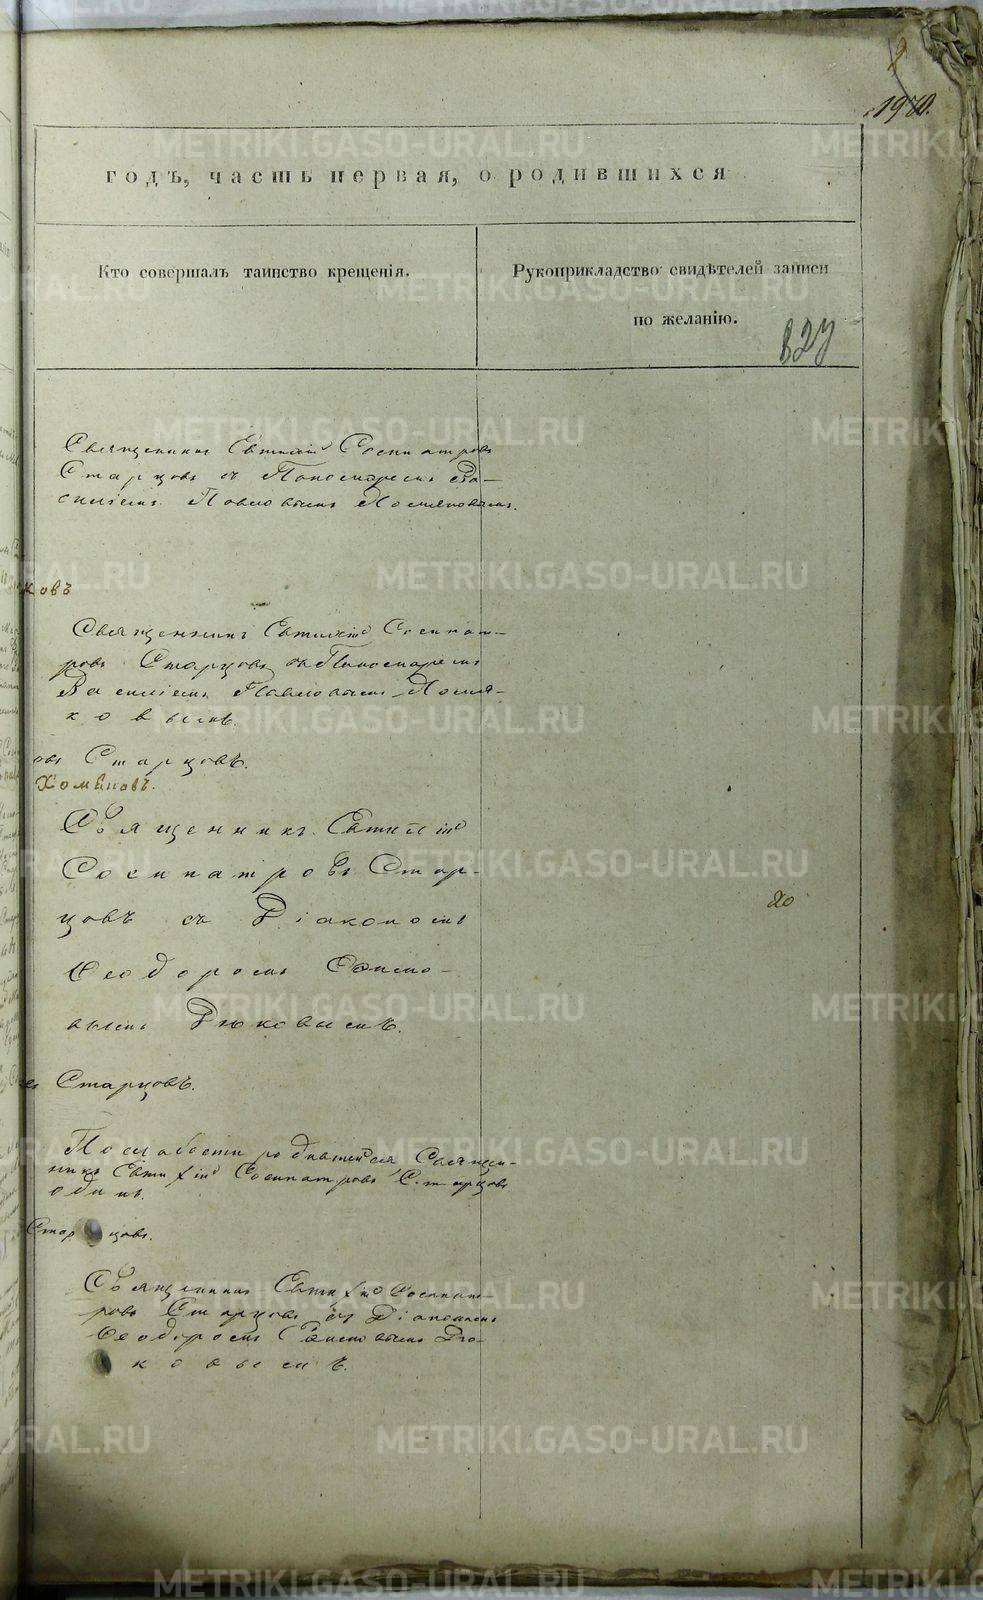 1970.
годъ, часть первая, о родившихся
Кто совершалъ таинство крещенія.
Рукоприкладство свидѣтелей записи
по желанію.
827
Священникъ Евтихій Сосипатровъ
Старцовъ съ Пономаремъ Ва-
силіемъ Павловымъ
ковъ
Священникъ Евтихій Сосипат-
ровъ Старцовъ съ Пономаремъ
Василіемъ Павловымъ
ковымъ.
овъ Старцовъ.
Хомяковъ.
Священникъ Евтихій
Сосипатровъ Стар-
цовъ съ Діакономъ
Ѳеодоромъ
вымъ Дюковымъ.
20
Старцовъ.
По слабости родившейся Священ-
никъ Евтихій Сосипатровъ Старцовъ
одинъ.
Старцовъ.
Священникъ Евтихій Сосипат-
ровъ Старцовъ съ Діакономъ
Ѳеодоромъ Дю-
ковымъ.
METRIKI.GASO-URAL.RU